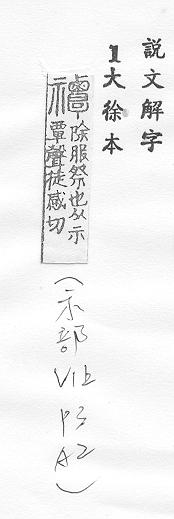 說文解字
1大徐本
禫 除服祭也从示
覃聲徒感切
(示部 V1上 P3 A2)